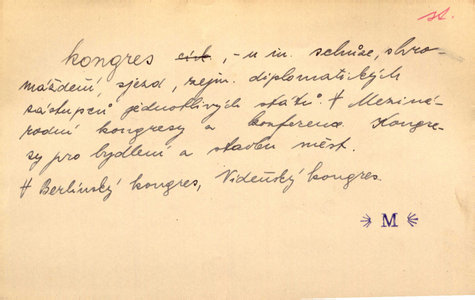 st.
kongres círk, -u m. schůze, shro-
máždění, sjezd, zejm. diplomatických
zástupců jednotlivých států. † Meziná-
rodní kongresy a konference. Kongre-
sy pro bydlení a stavbu měst.
† Berlínský kongres, Vídeňský kongres.
M